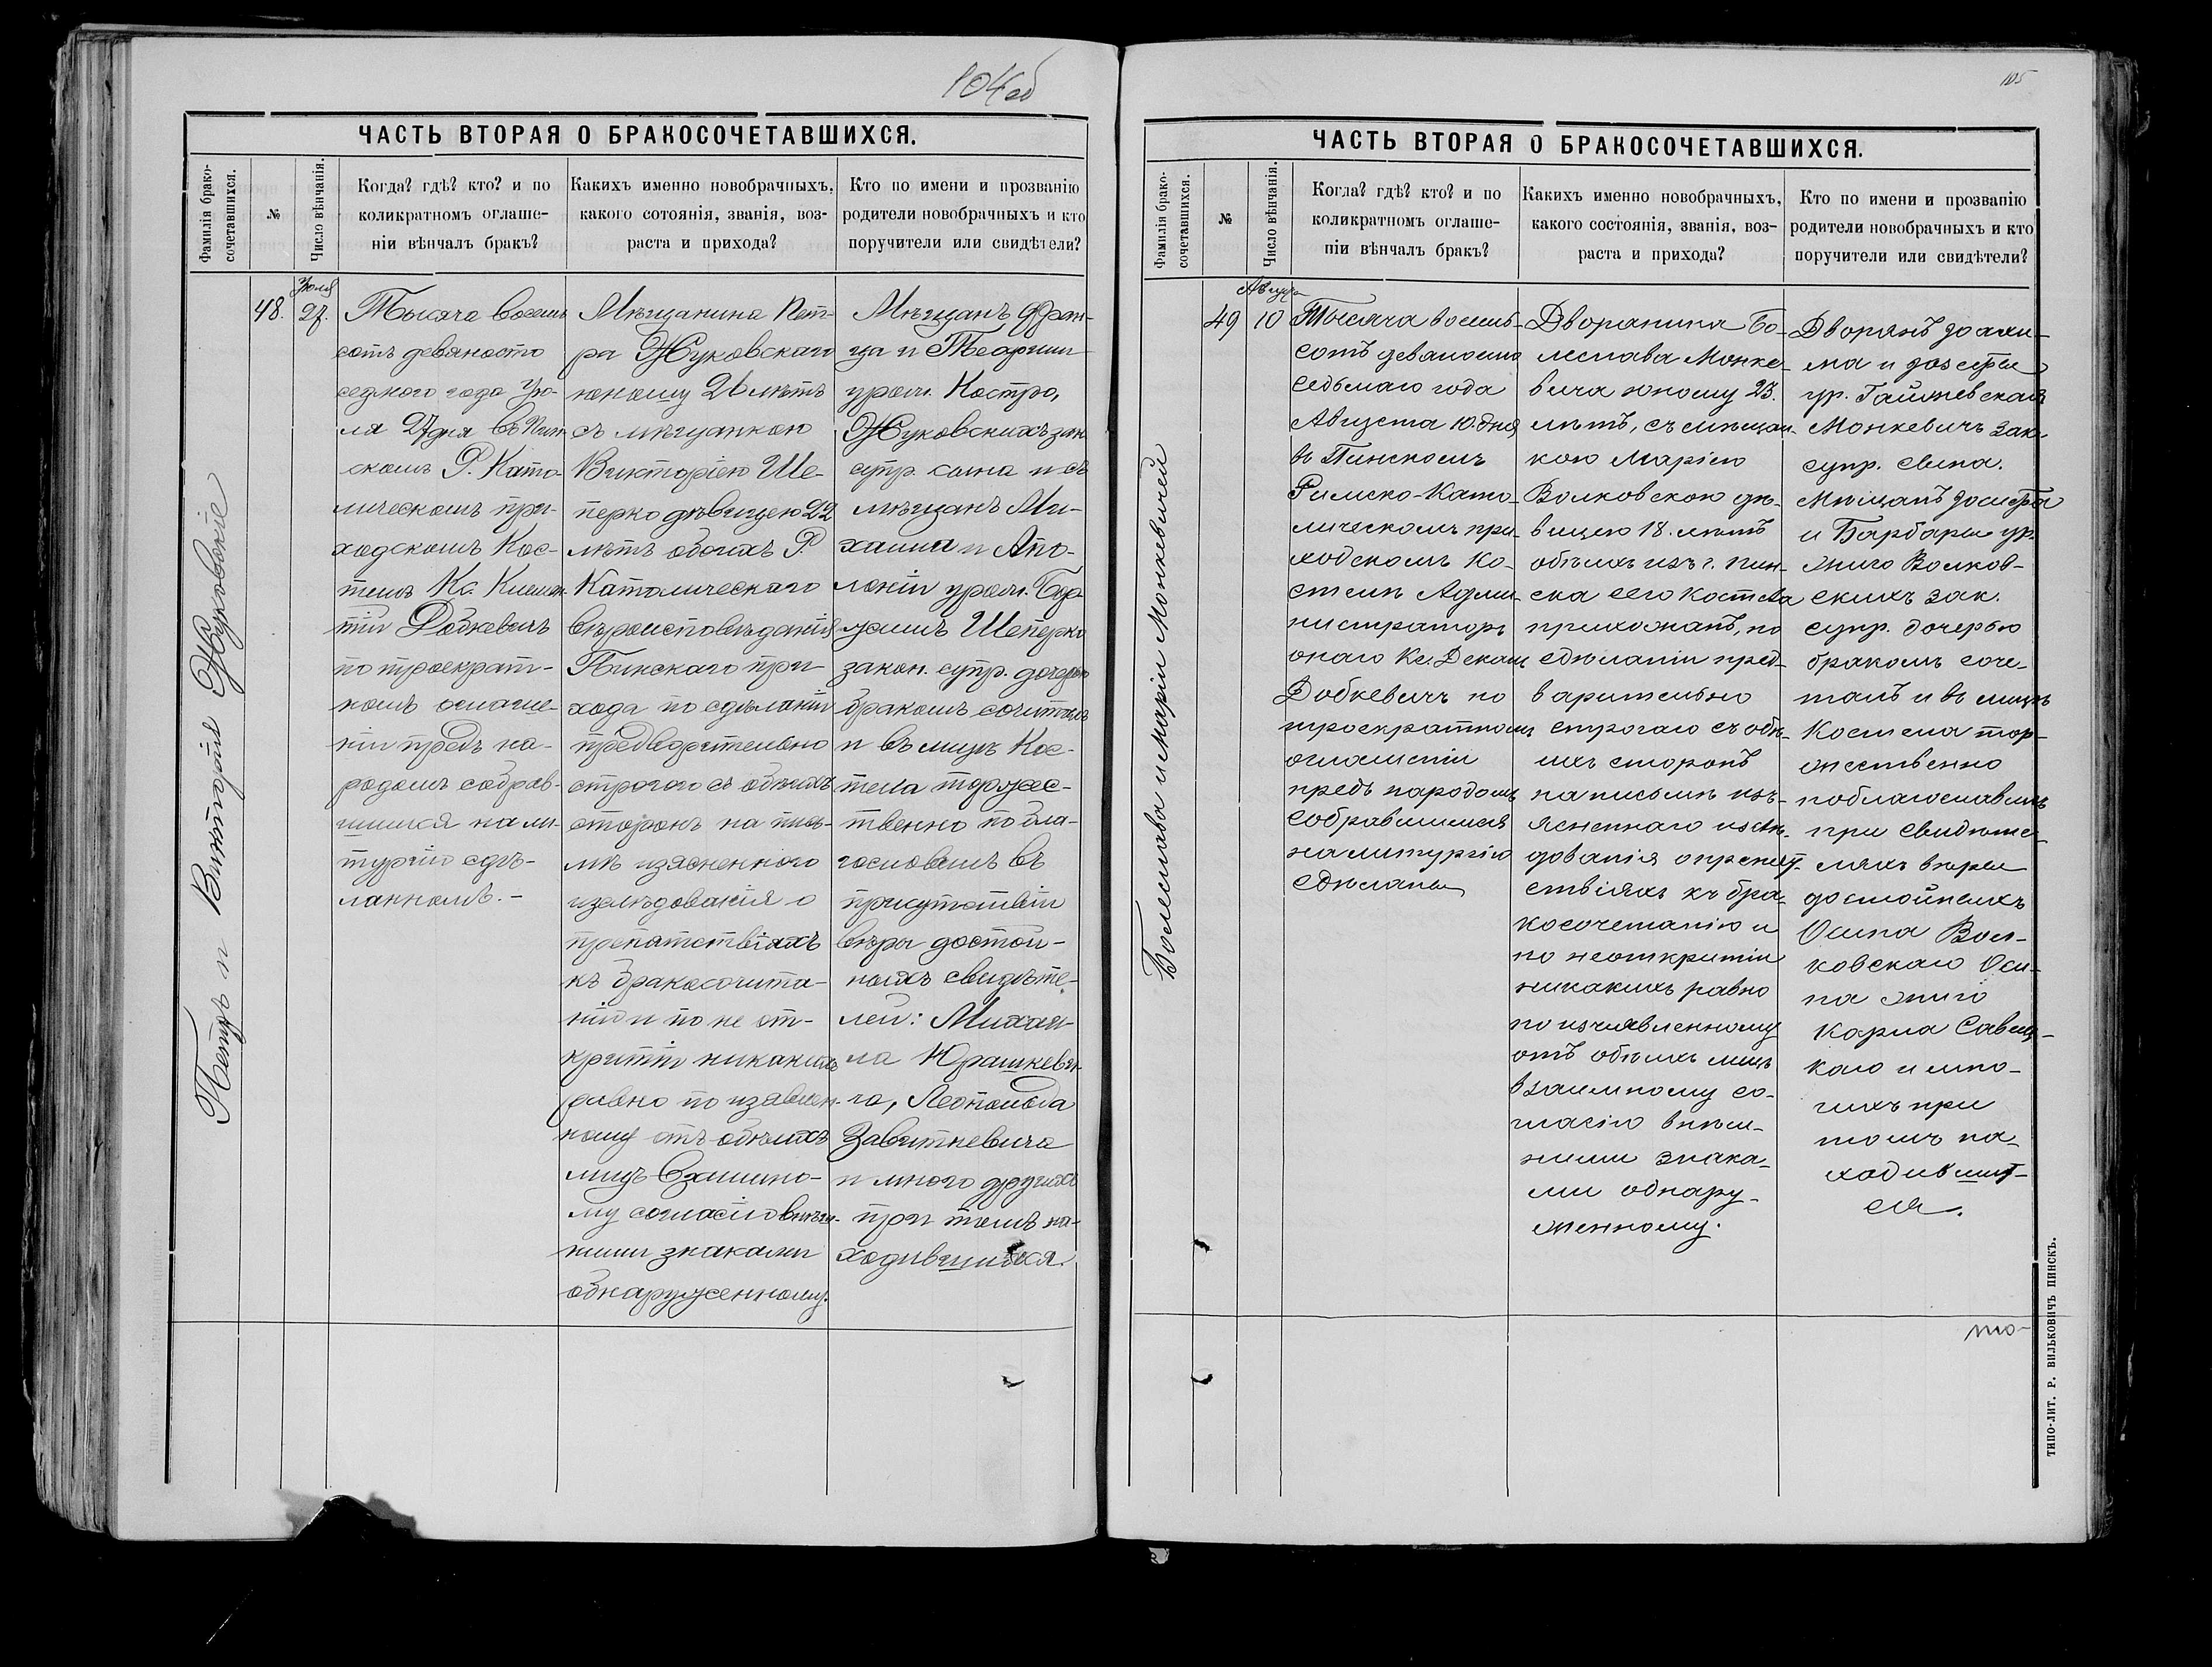 104об
ЧАСТЬ ВТОРАЯ О БРАКОСОЧЕТАВШИХСЯ.
Фамилія брако-
сочетавшихся.
№
Число вѣнчанія.
Когда? гдѣ? кто? и по
коликратномъ оглаше-
ніи вѣнчалъ бракъ?
Какихъ именно новобрачныхъ,
какого сотоянія, званія, воз-
раста и прихода?
Кто по имени и прозванію
родители новобрачныхъ и кто
поручители или свидѣтели?
Петръ и Викторія Жуковскіе
48.
Іюля
27.
Тысяча восемь
сотъ девяносто
седмого года Ію-
ля 27 дня въ Пин-
скомъ Р. Като-
лическомъ при-
ходскомъ Кос-
телѣ Кс. Клемен-
тій Добкевичъ
по троекрат-
номъ оглаше-
ніи предъ на-
родомъ собрав-
шимся на ли-
тургію сдѣ-
ланномъ.-
Мѣщанина Пет-
ра Жуковскаго
юношу 26 лѣтъ
съ мѣщанкою
Викторіею Ше-
перко дѣвицею 22
лѣтъ обоихъ Р.
Католическаго
вѣроисповѣданія
Пинскаго при-
хода по сдѣланіи
предварительно
строгого съ обѣихъ
сторонъ на пись-
мѣ изясненного
изслѣдованія о
препятствіяхъ
къ бракосочита-
нію и по не от-
критіи никакихъ
равно по изявлен-
ному отъ обѣихъ
лицъ взаимно-
му согласію внѣш-
ними знаками
обнаруженному.
Мѣщанъ Фран-
ца и Теофиліи
урожд. Костро,
Жуковскихъ зак.
супр. сына и съ
мѣщанъ Ми-
хаила и Апо-
лоніи урожд.
Шеперко
закон. супр. дочерью
бракомъ сочиталъ
и въ лицѣ Кос-
тела торжес-
твенно побла-
гословилъ въ
присутствіи
вѣры достой-
ныхъ свидѣте-
лей: Михаи-
ла Юрашкеви-
ча, Леопольда
Завитневича
и много другихъ
при томъ на-
ходившихся.
105
ЧАСТЬ ВТОРАЯ О БРАКОСОЧЕТАВШИХСЯ.
Фамилія брако-
сочетавшихся.
№
Число вѣнчанія.
Когда? гдѣ? кто? и по
коликратномъ оглаше-
ніи вѣнчалъ бракъ?
Какихъ именно новобрачныхъ,
какого состоянія, званія, воз-
раста и прихода?
Кто по имени и прозванію
родители новобрачныхъ и кто
поручители или свидѣтели?
Болеслава и Маріи Монкевичей
49
Августа
10
Тысяча восемь-
сотъ девяносто
седьмаго года
Августа 10. дня
въ Пинскомъ
Римско-Като-
лическомъ при-
ходскомъ Ко-
стелѣ Адми-
нистраторъ
онаго Кс. Декан
Добкевичъ по
троекратномъ
оглашеніи
предъ народомъ
собравшимся
на литургію
сдѣланы
Дворянина Бо-
леслава Монке-
вича юношу 23.
лѣтъ, съ мѣщан-
кою Маріею
Волковскою дѣ-
вицею 18. лѣтъ
обѣихъ изъ г. Пин-
ска сего костела
прихожанъ, по
сдѣланіи пред-
варительно
строгаго съ обѣ-
ихъ сторонъ
на письмѣ изъ-
ясненнаго изслѣ-
дованія о препят-
ствіяхъ къ бра-
косочетанію и
по неоткритіи
никакихъ равно
по изъявленному
отъ обѣихъ лицъ
взаимному со-
гласію внѣш-
ними знака-
ми обнару-
женному.
Дворянъ Іоахи-
ма и Іозефы
ур. Гайжевской
Монкевичъ зак.
супр. сына.
Мѣщанъ Іосифа
и Барбары ур.
Волков-
скихъ зак.
супр. дочерью
бракомъ соче-
талъ и въ лицѣ
Костела тор-
жественно
поблагославилъ
при свидѣте-
ляхъ вѣры
достойныхъ
Осипа Вол-
ковскаго Оси-
па
Карла Савиц-
каго и мно-
гихъ при
томъ на-
ходивших-
ся.
ТИПО-ЛИТ. Р. ВИЛЬКОВИЧЪ ПИНСКЪ.